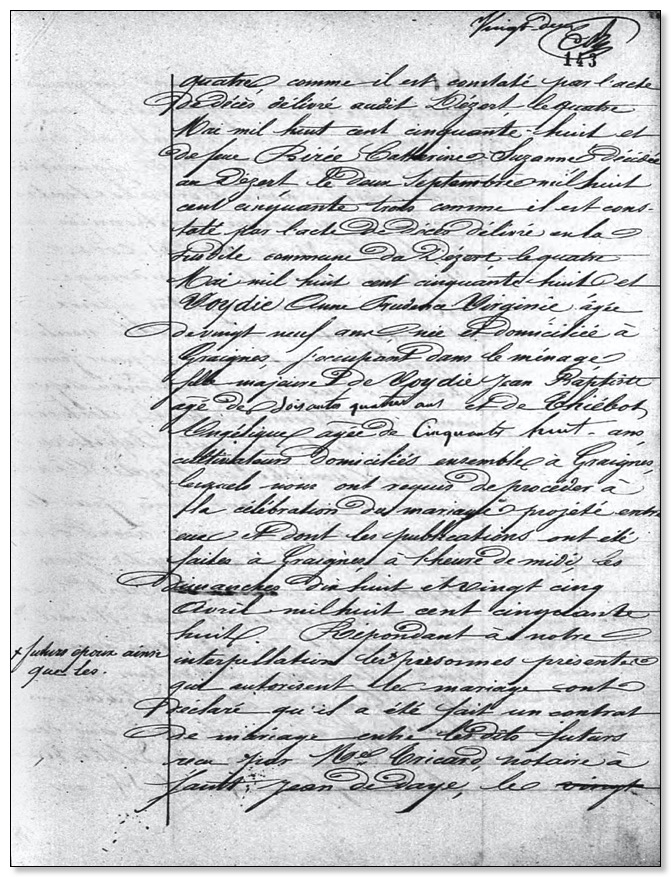 Vingt-deux
143
quatre comme il est constaté par l'acte
de décès délivré audit Dézert le quatre
Mai mil huit cent cinquante-huit et
de feue Birée Catherine Suzanne décédée
au Dézert le deux Septembre mil huit
cent cinquante trois comme il est cons-
taté par l'acte de Décès délivré en la
susdite commune du Dézert le quatre
Mai mil huit cent cinquante-huit et
Voydie Anne Prudence Virginie âgée
de vingt neuf ans née et domiciliée à
Graignes s'occupant dans le ménage
fille majeure de Voydie Jean Baptiste
agé de soixante quatre ans et de Thiébot
Angélique agée de Cinquante huit ans
cultivateurs domiciliés ensemble à Graignes,
lesquels nous ont requis de procéder à
la célébration du mariage projeté entre
eux et dont les publications ont été
faites à Graignes à l'heure de midi, les
Dimanches dix huit et vingt cinq
Avril mil huit cent cinquante
huit. Répondant à notre
interpellation les personnes présentes
+ futurs époux ainsi
que les.
qui autorisent le mariage ont
Déclaré qu'il a été fait un contrat
de mariage entre lesdits futurs
recu par Me Tricard, notaire à
Saint Jean de Daye, le vingt